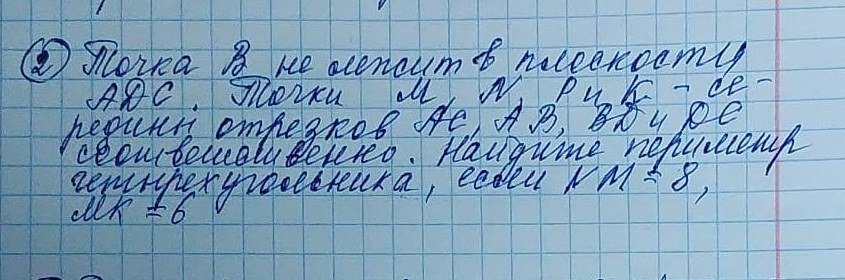 ② Точка В не лежит в плоскости
АДС. Точки М, N, Р и К - се-
редины отрезков АС, АВ, ВD и DC
соответственно. Найдите периметр
четырехугольника, если NM = 8,
МК = 6